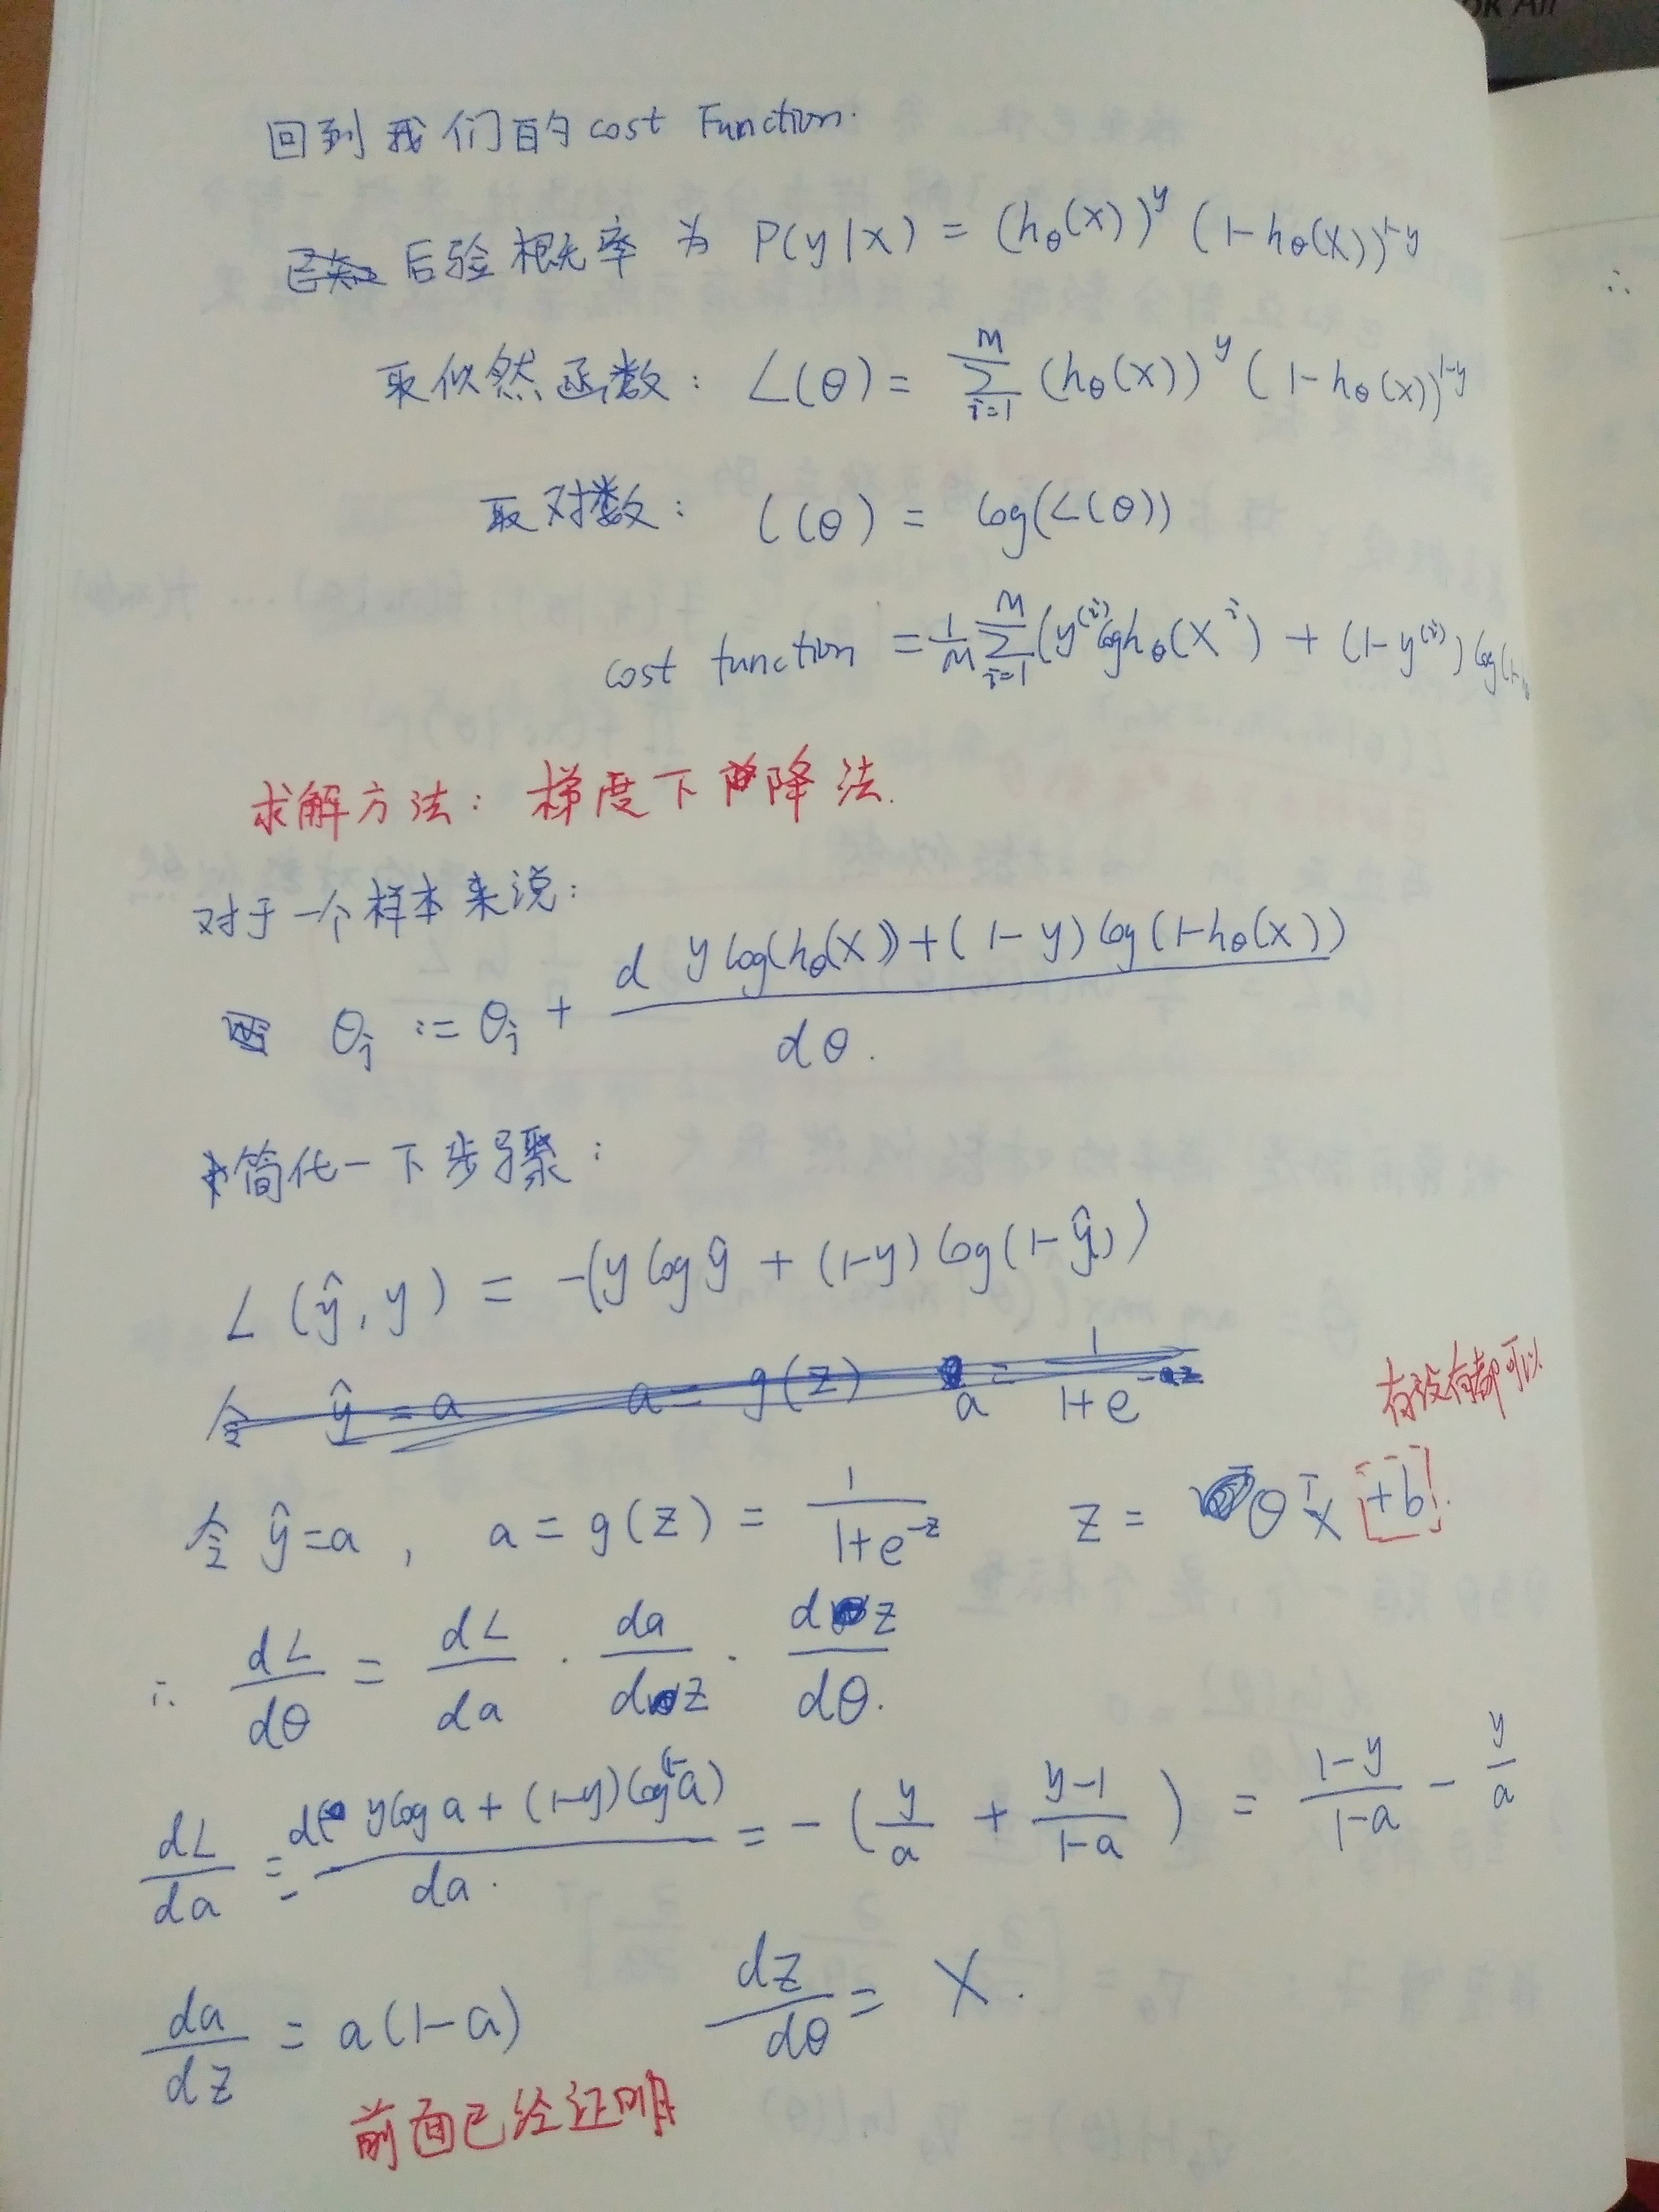 回到我们的 cost Function.
后验概率为 P(y|x) = (hθ(x))^y (1-hθ(x))^1-y
取似然函数: L(θ) = ∑_{i=1}^{m} (hθ(x))^y (1-hθ(x))^1-y
取对数: l(θ) = log(L(θ))
cost function = 1/m ∑_{i=1}^{m} (y^(i) log hθ(x^i) + (1-y^(i)) log(1-
求解方法: 梯度下降法.
对于一个样本来说:
θj := θj + d y log(hθ(x)) + (1-y) log(1-hθ(x)) / dθ.
简化一下步骤:
L(ŷ, y) = -(y log ŷ + (1-y) log(1-ŷ))
令 ŷ = a a = g(z) a = 1/(1+e^-z)
有没有都可以
令 ŷ=a, a = g(z) = 1/(1+e^-z) z = θ^T x +b.
∴ dL/dθ = dL/da · da/dz · dz/dθ.
dL/da = - d( y log a + (1-y) log(1-a) / da. = -(y/a + (y-1)/(1-a)) = (1-y)/(1-a) - y/a
da/dz = a(1-a) dz/dθ = x.
前面已经证明